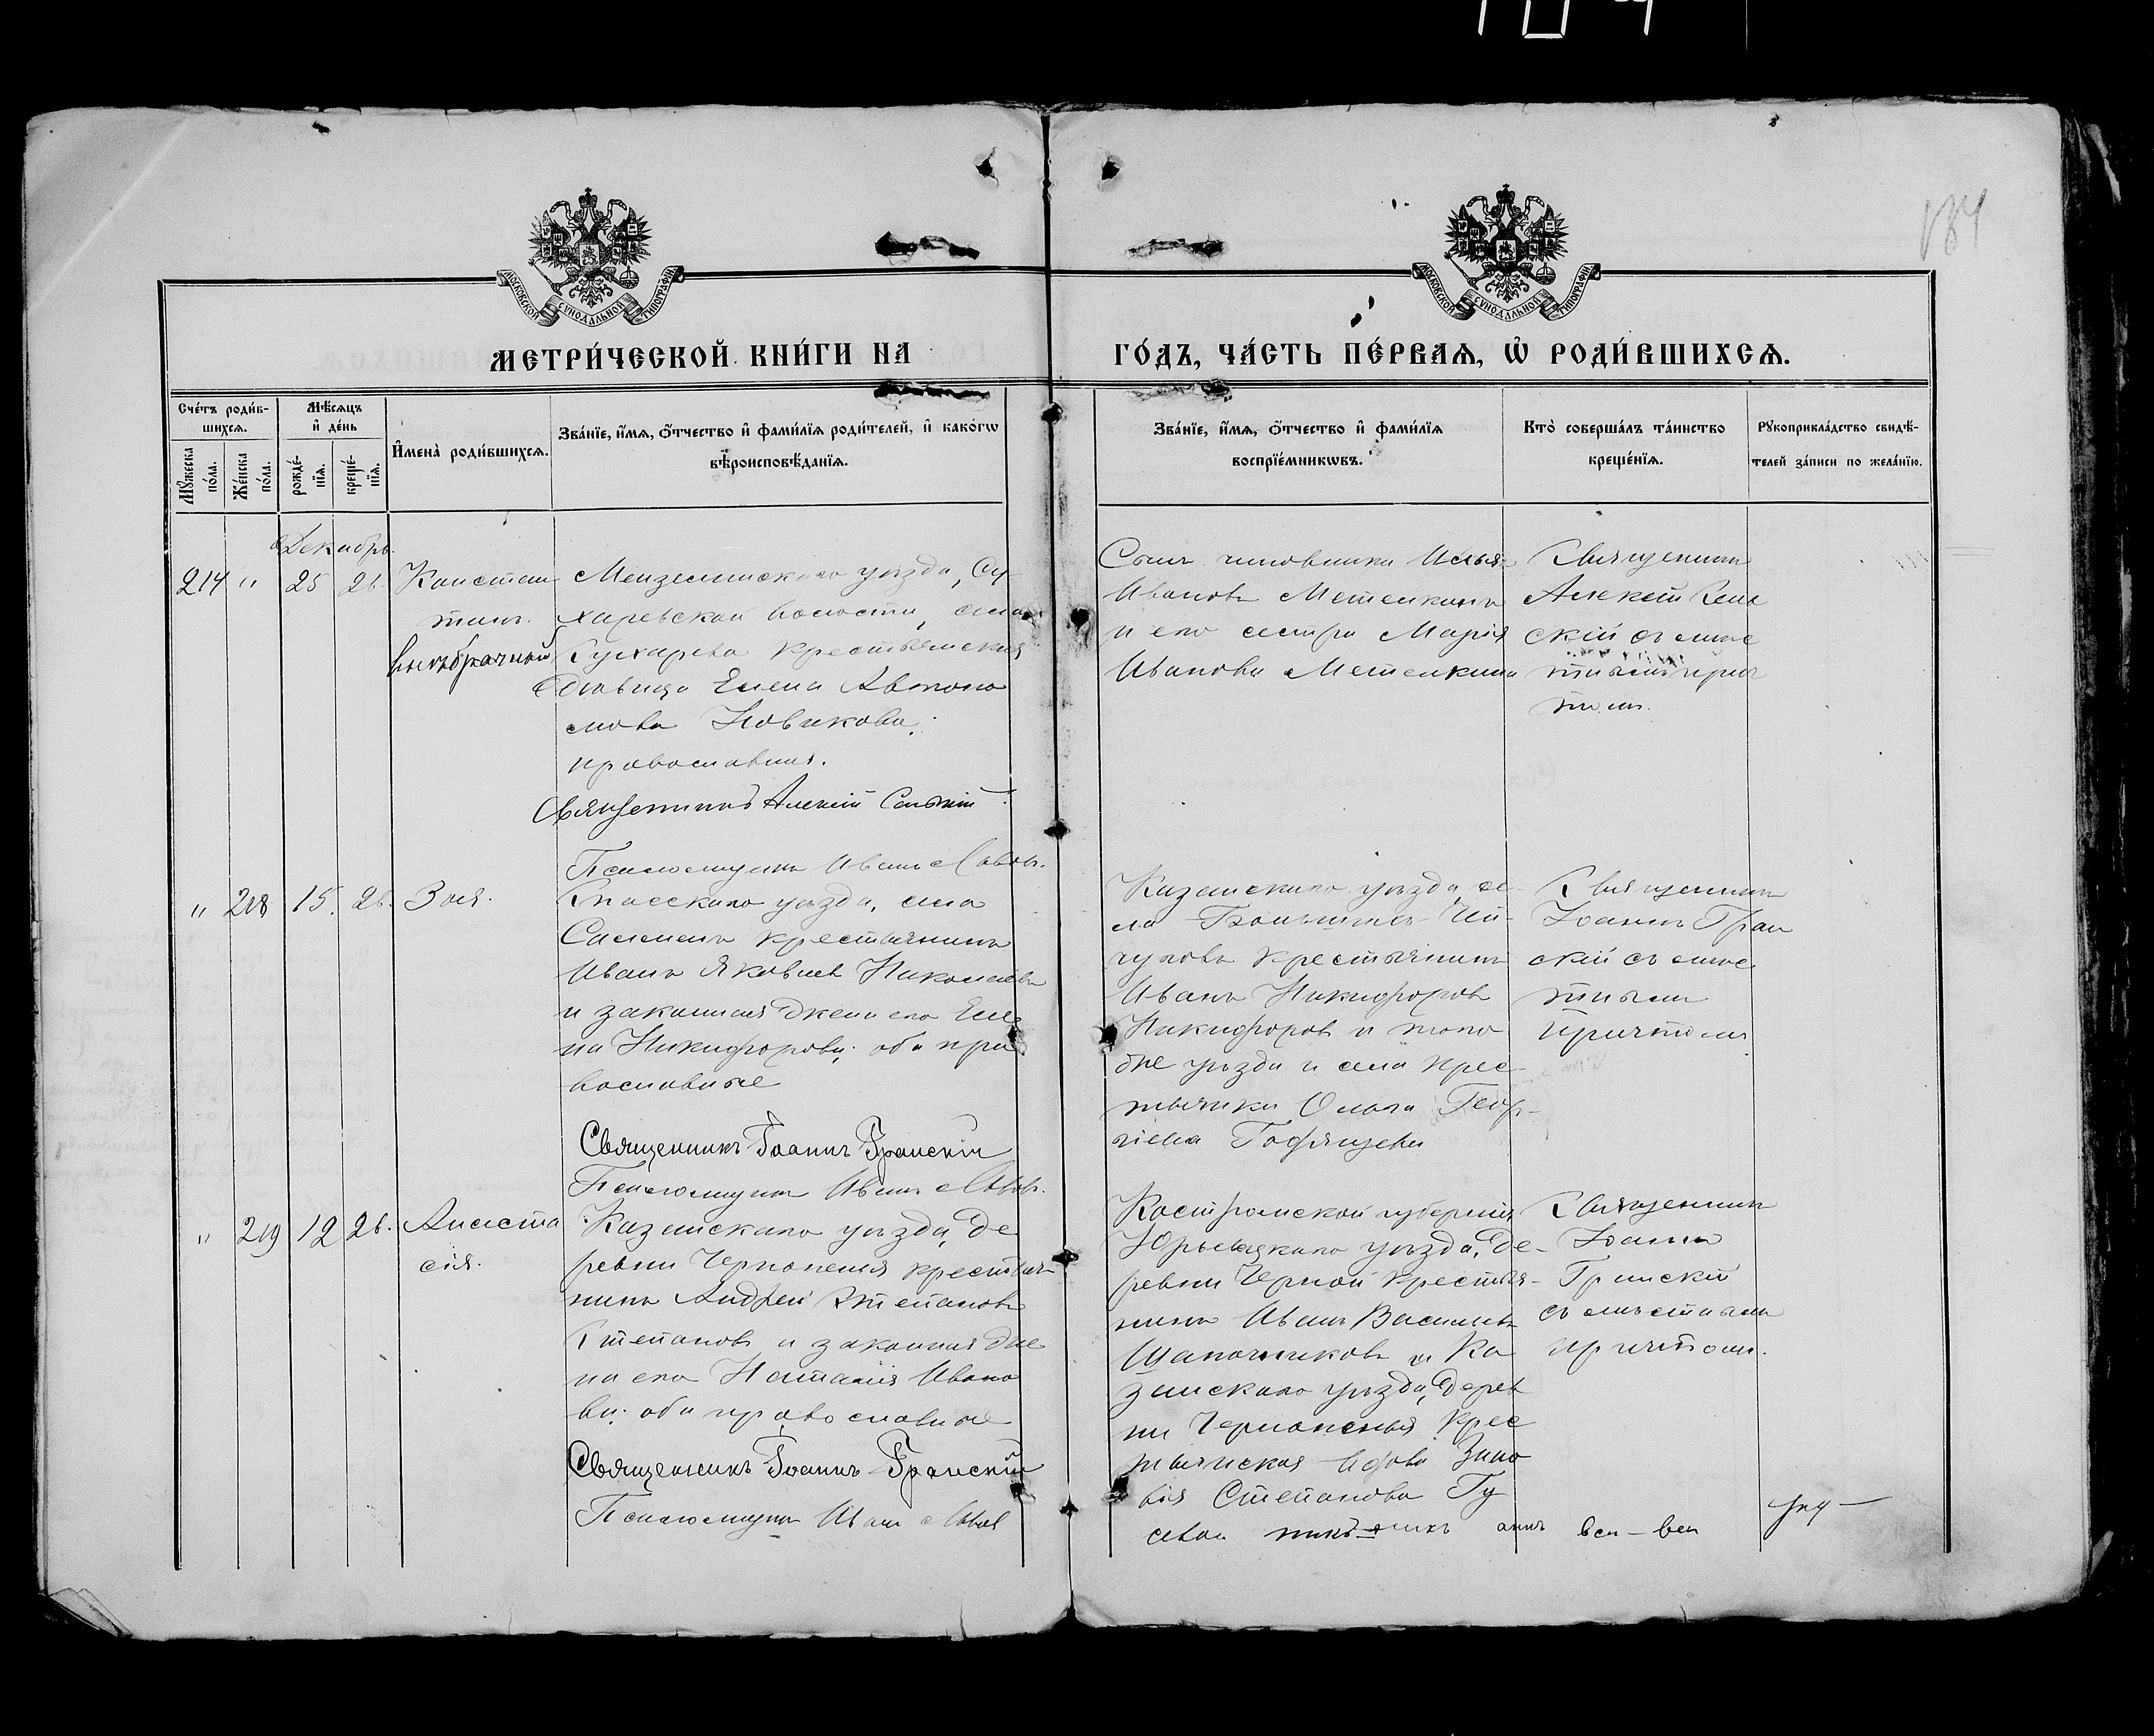 134
МОСКОВСКОЙ СѴНОДАЛЬНОЙ ТИПОГРАФІИ
МОСКОВСКОЙ СѴНОДАЛЬНОЙ ТИПОГРАФІИ
МЕТРИ́ЧЕСКОЙ КНИ́ГИ НА
ГО́ДЪ, ЧА́СТЬ ПЕ́РВАѦ, Ѡ҆ РОДИ́ВШИХСѦ.
Сче́тъ роди́в-
шихсѧ.
Мꙋ́жеска по́ла.
Же́нска по́ла.
Мѣ́сѧцъ
и҆ де́нь
рожде́-
нїѧ.
креще́-
нїѧ.
И҆мена̀ роди́вшихсѧ.
Зва́нїе, и҆́мѧ, ѻ҆́тчество и҆ фами́лїѧ роди́телей, и҆ како́гѡ
вѣроисповѣ́данїѧ.
Зва́нїе, и҆́мѧ, ѻ҆́тчество и҆ фами́лїѧ
воспрїе́мникѡвъ.
Кто̀ соверша́лъ та́инство
креще́нїѧ.
Рꙋкоприкла́дство свидѣ́-
телей за́писи по жела́нїю.
Декабрь.
214 " 25 26. Констан
тинъ.
внѣбрачный
Мензелинскаго уѣзда, Су-
харевской волости, села
Сухарева крестьянская
дѣвица Елена Автоно
мова Новикова;
православная.
Священникъ Алексій
Псаломщикъ Иванъ
Сынъ чиновника Илья
Ивановъ Метелкинъ
и его сестра Марія
Иванова Метелкина
Священникъ
Алексій
скій съ мѣс
тнымъ прич
томъ.
" 218 15. 26. Зоя.
Спасскаго уѣзда, села
крестьянинъ
Иванъ Яковлевъ Николаевъ
и законная жена его Еле
на Никифорова; оба пра
вославные
Священникъ Іоаннъ Гранскій
Псаломщикъ Иванъ
Казанскаго уѣзда, се-
ла
крестьянинъ
Иванъ Никифоровъ
Никифоровъ и того
же уѣзда и села крес-
тьянка Ольга Геор-
гіева
Священникъ
Іоаннъ Гран
скій съ мѣс
тнымъ
причтомъ
" 219 12 26. Анаста
сія.
Казанскаго уѣзда, де
ревни крестья-
нинъ Андрей Степановъ
Степановъ и законная же
на его Наталія Ивано
ва; оба православные
Священникъ Іоаннъ Гранскій
Псаломщикъ Иванъ
Костромской губерніи
Юрьевецкаго уѣзда, де-
ревни Черной крестья-
нинъ Иванъ Васильевъ
Шапошниковъ и Ка
занскаго уѣзда, дерев
ни крес
тьянская вдова Зино
вія Степанова Гу
сева
Священникъ
Іоаннъ
Гранскій
съ мѣстнымъ
причтомъ.